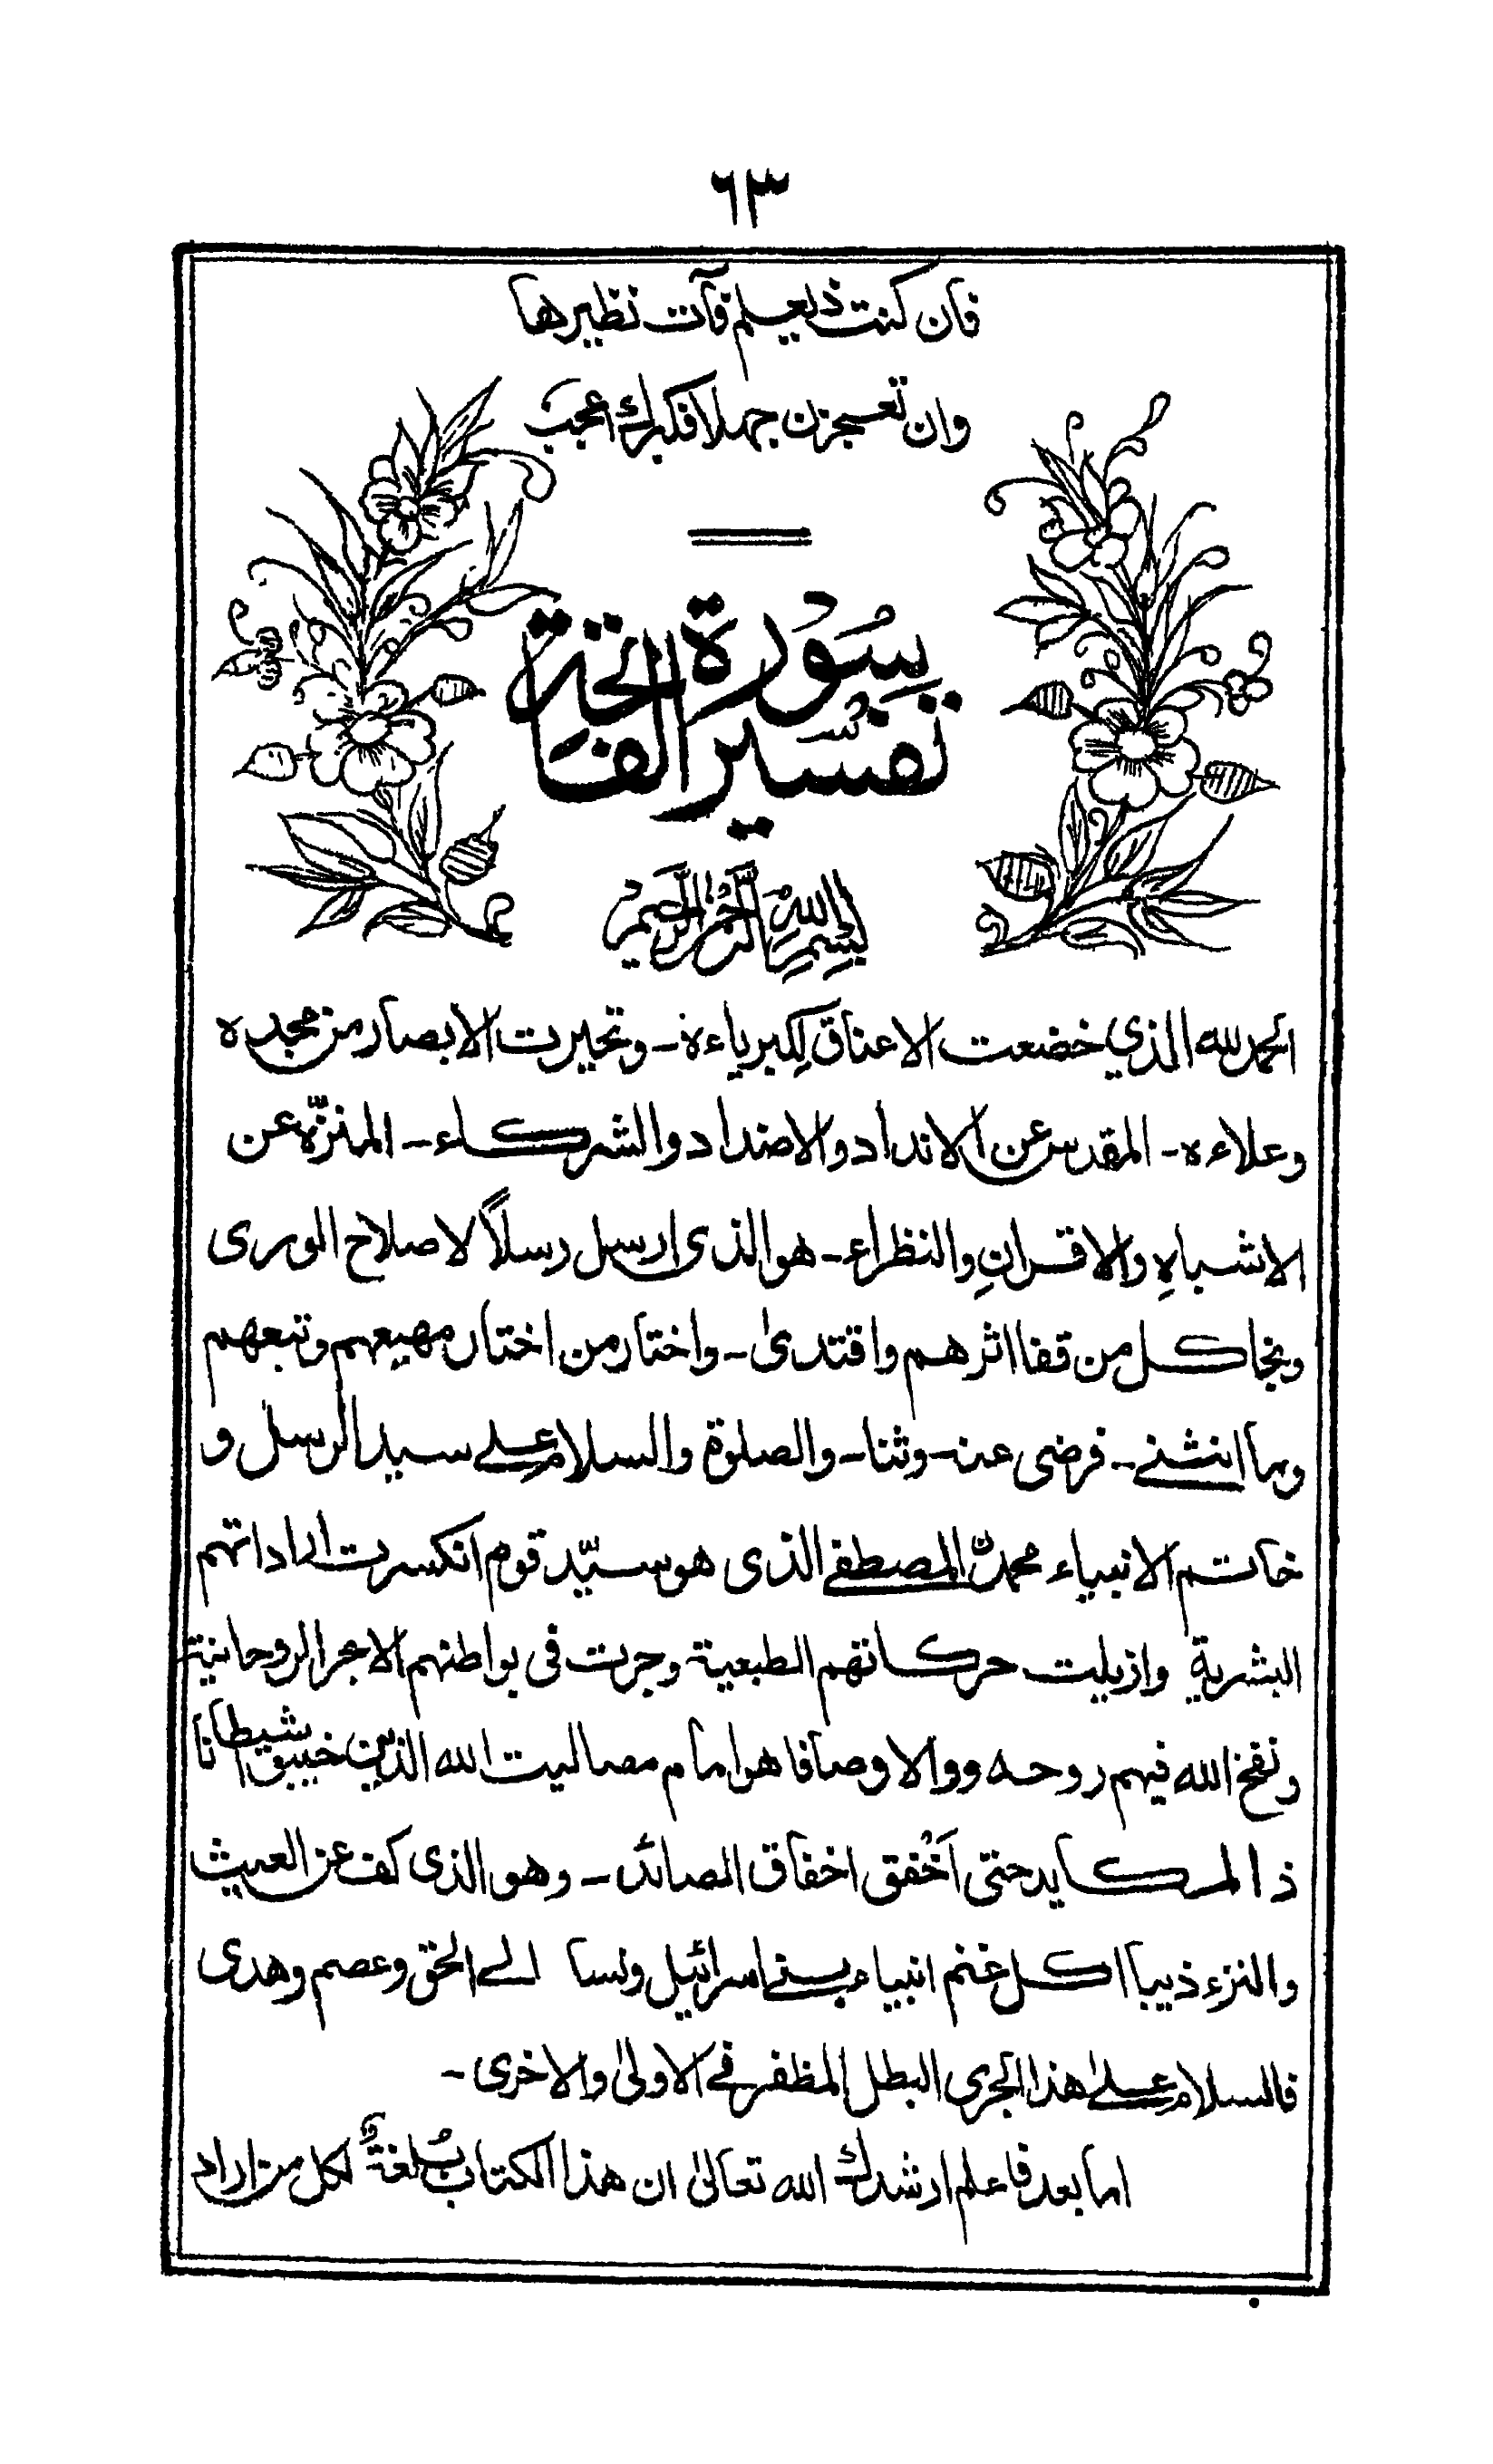 ٦٣
فان كنت ذا علم فآت نظيرها
وان تعجزن جهلا فكبرك اعجب
تفسير سورة الفاتحة
بسم الله الرحمن الرحيم
الحمد لله الذي خضعت الاعناق لِكبرياءه - وتحيرت الابصار من مجده
وعلاءه - المقدس عن الانداد والاضداد والشركاء - المنزّه عن
الاشباهِ والاقرانِ والنظراء - هو الذى ارسل رسلاً لاصلاح الورى
ونجا كل من قفا اثرهم واقتدىٰ - واختار من اختار مهيعهم وتبعهم
وما انثنے - فرضى عنه - وثنا - والصلوة والسلام علے سيد الرسل و
خاتم الانبياء محمدنِ المصطفے الذى هو سيّد قوم انكسرت اراداتهم
البشرية وازيلت حركاتهم الطبعية وجرت فى بواطنهم الابحر الروحانية
ونفخ الله فيهم روحه ووالا وصافا هو امام مصاليت الله الذين خيبوا شيطانا
ذا المكايد حتى اَخْفق اخفاق الصائد - وهو الذى كف عن العيث
والنزء ذيبا اكل غنم انبياء بنے اسرائيل ونسا الے الحق وعصم وهدى
فالسلام علےٰ هذا الجرى البطل المظفر فے الاولىٰ والاخرى -
اما بعد فاعلم ارشدك الله تعالىٰ ان هذا الكتاب بُلغةٌ لكل من اراد